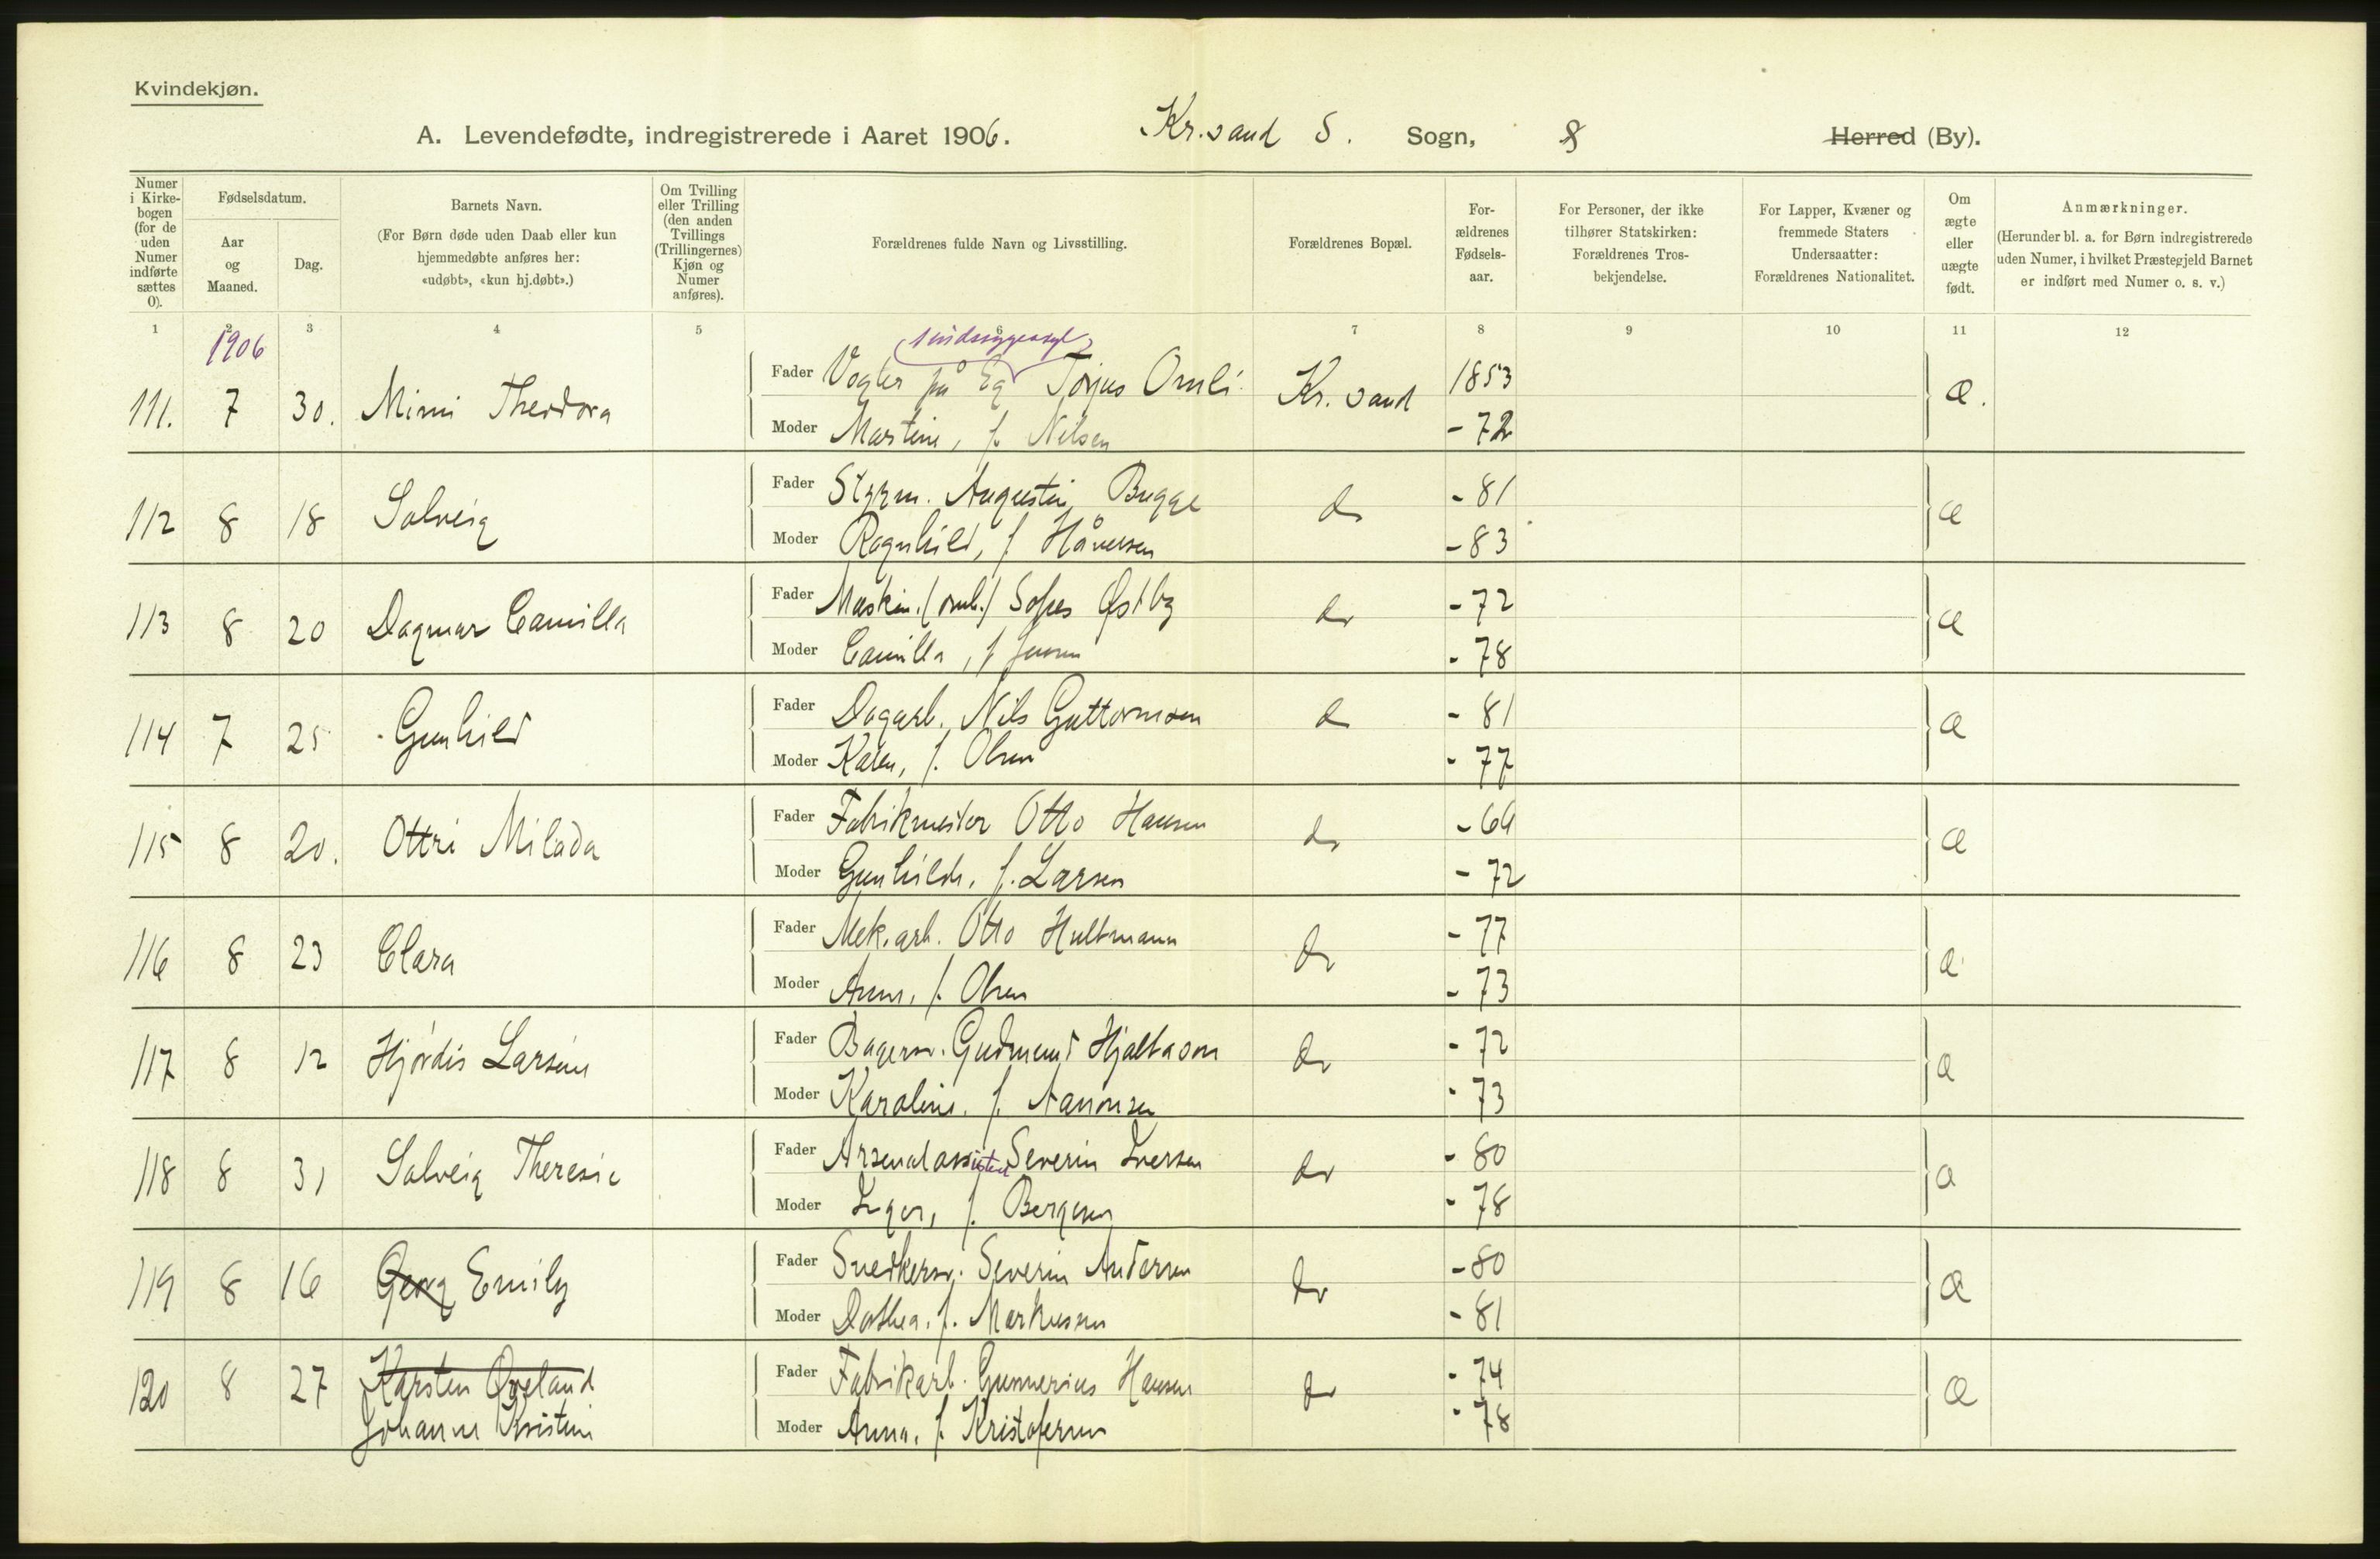 Kvindekjøn.
A. Levendefødte, indregistrerede i Aaret 1906. Kr.sand S. Sogn, 8 Herred (By).
Numer i Kirke-bogen (for de uden Numer indførte sættes 0).
Fødselsdatum.
Aar og Maaned.
Dag.
Barnets Navn.
(For Børn døde uden Daab eller kun hjemmedøbte anføres her: «udøbt», «kun hj.døbt».)
Om Tvilling eller Trilling (den anden Tvillings (Trillingernes) Kjøn og Numer anføres).
Forældrenes fulde Navn og Livsstilling.
Forældrenes Bopæl.
For-ældrenes Fødsels-aar.
For Personer, der ikke tilhører Statskirken: Forældrenes Tros-bekjendelse.
For Lapper, Kvæner og fremmede Staters Undersaatter: Forældrenes Nationalitet.
Om ægte eller uægte født.
Anmærkninger.
(Herunder bl. a. for Børn indregistrerede uden Numer, i hvilket Præstegjeld Barnet er indført med Numer o. s. v.)
1 2 3 4 5 6 7 8 9 10 11 12
1906
sindssygeasyl
111. 7 30. Mimi Theodora Fader Vogter på Eg Torjus Omli Kr. sand 1853 æ.
Moder Martine, f. Nilsen - 72
112 8 18 Solveig Fader Styrm. Augustin Bugge do - 81 æ
Moder Ragnhild, f Håversen - 83
113 8 20 Dagmar Camilla Fader Maskin. (omb.) Sofus Østby do - 72 æ
Moder Camilla, f Jensen - 78
114 7 25 Gunhild Fader Dagarb. Nils Guttormsen do - 81 æ
Moder Karen, f. Olsen - 77
115 8 20. Ottri Milada Fader Fabrikmester Otto Hansen do - 64 æ
Moder Gunhilde, f. Larsen - 72
116 8 23 Clara Fader Mek.arb. Otto Hultmann do - 77 æ
Moder Anna, f. Olsen - 73
117 8 12 Hjördis Larsine Fader Bagersv. Gudmund Hjaltason do - 72 æ
Moder Karoline, f. Aanonsen - 73
118 8 31 Solveig Theresie Fader Arsenalassistent Severin Iversen do - 80 æ
Moder Inger, f. Bergesen - 78
119 8 16 Georg Emily Fader Snedkersv. Severin Andersen do - 80 æ
Moder Dorthea, f. Markussen - 81
120 8 27 Karsten Øyeland Fader Fabrikarb. Gunnerius Hansen do - 74 æ
Johanne Kristine Moder Anna, f. Kristofersen - 78